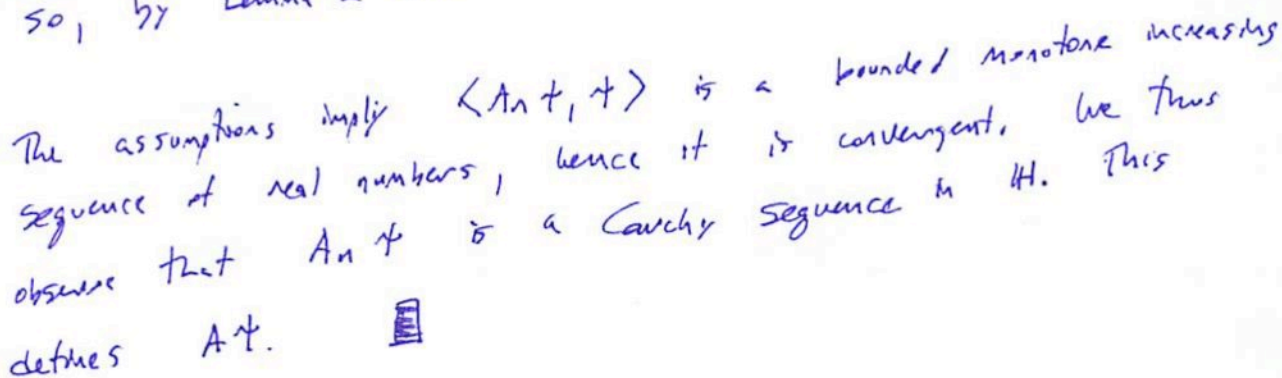 so, by
The assumptions imply ⟨Anψ, ψ⟩ is a bounded monotone increasing
sequence of real numbers, hence it is convergent. We thus
observe that Anψ is a Cauchy sequence in ℍ. This
defines Aψ.